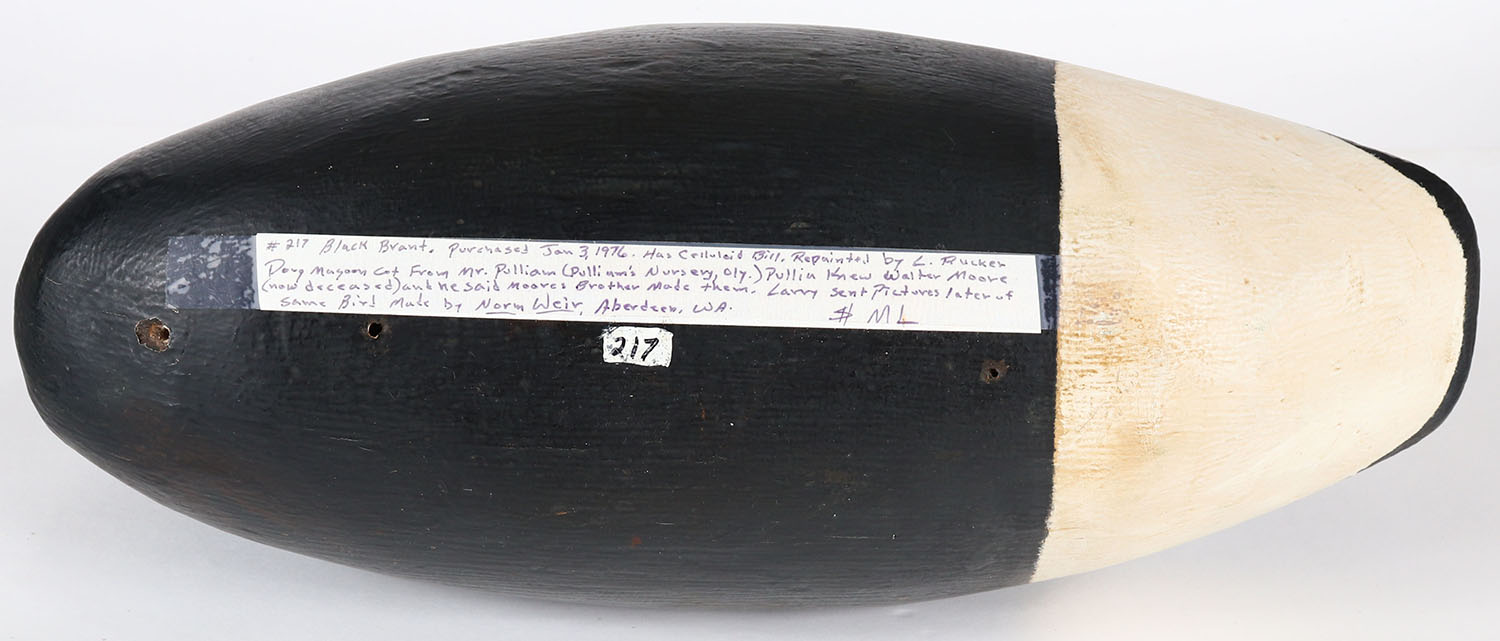 # 217 Black Brant. Purchased Jan 3, 1976. Has Celluloid Bill. Repainted by L. Rucker
Doug Magoon Got From Mr. Pulliam (Pulliam's Nursery, Oly.) Pullia Knew Walter Moore
(now deceased) and he said Moores Brother Made them. Larry Sent Pictures later of
Same Bird Made by Norm Weir, Aberdeen, WA. $ ML
217